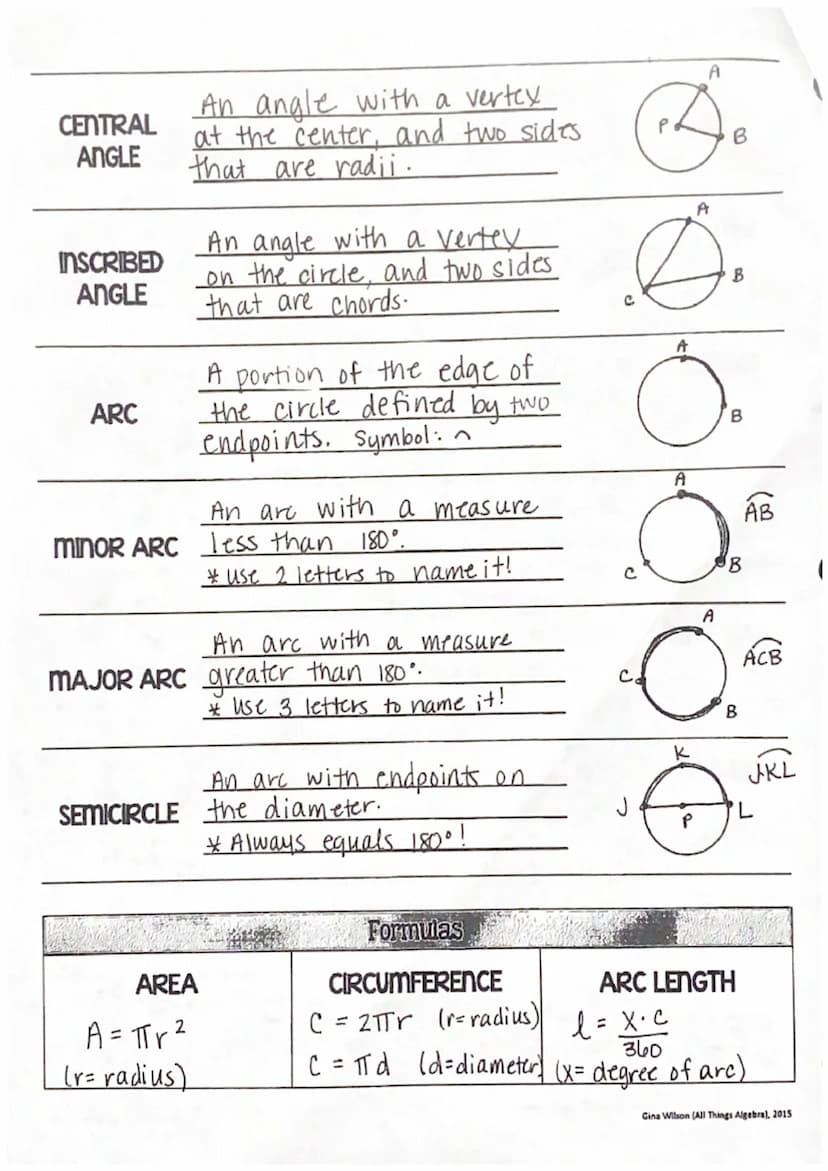 CENTRAL ANGLE
An angle with a vertex
at the center, and two sides
that are radii.
A
P
B
INSCRIBED ANGLE
An angle with a vertex
on the circle, and two sides
that are chords.
A
B
C
ARC
A portion of the edge of
the circle defined by two
endpoints. Symbol: ⌢
A
B
MINOR ARC
An arc with a measure
less than 180°.
* use 2 letters to name it!
A
AB
C
B
MAJOR ARC
An arc with a measure
greater than 180°.
* Use 3 letters to name it!
A
ACB
C
B
SEMICIRCLE
An arc with endpoints on
the diameter.
* Always equals 180°!
K
JKL
J
P
L
Formulas
AREA
A = πr²
(r= radius)
CIRCUMFERENCE
C = 2πr (r=radius)
C = πd (d=diameter)
ARC LENGTH
l = x·c
360
(x= degree of arc)
Gina Wilson (All Things Algebra), 2015